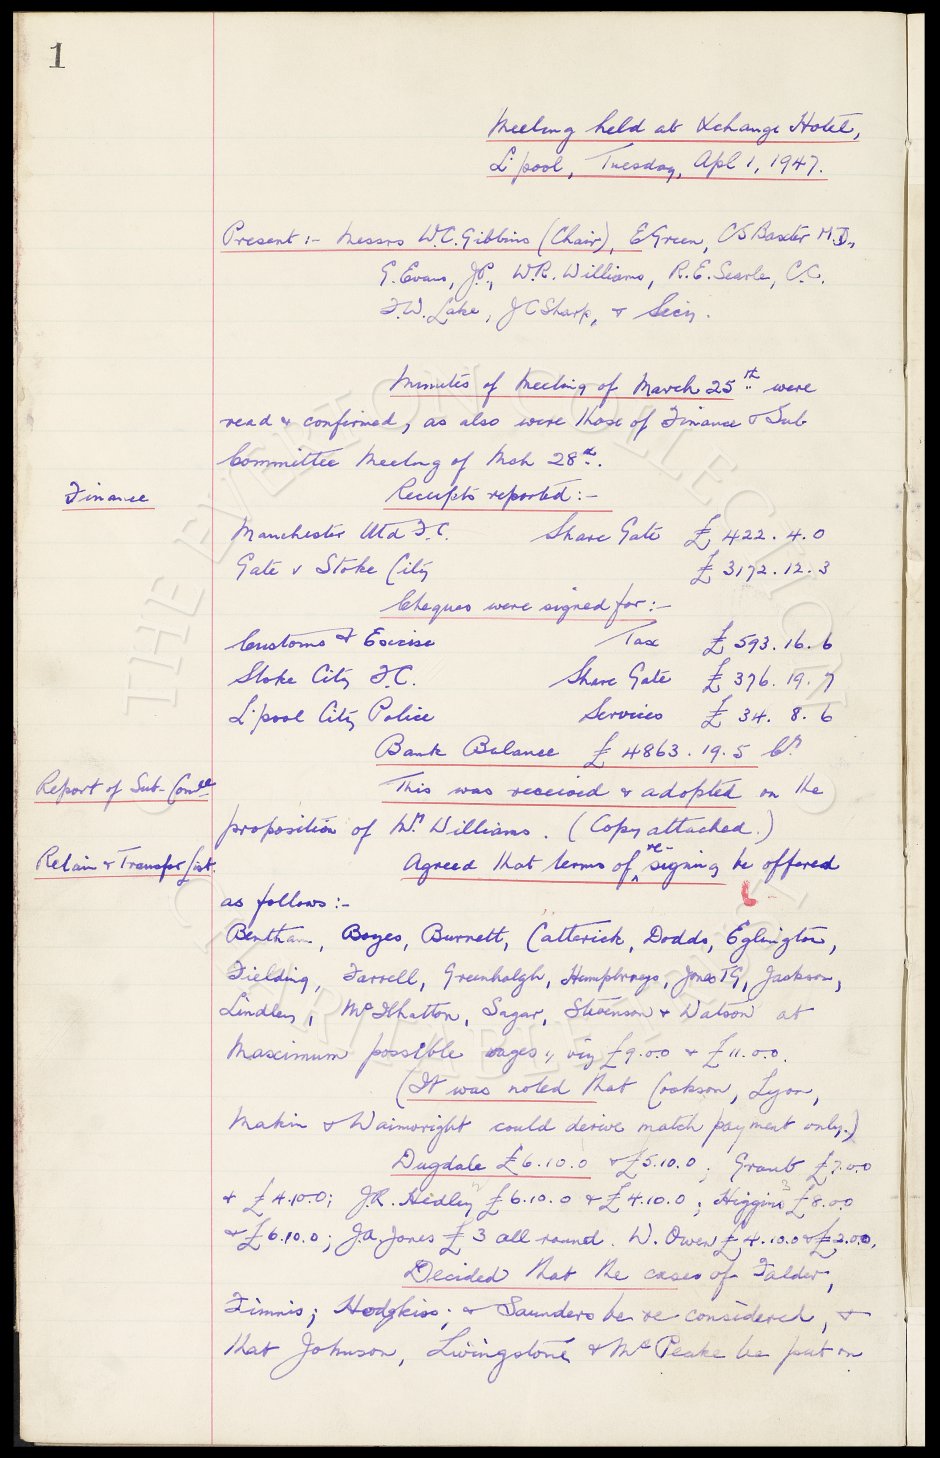 1
Meeting held at Xchange Hotel,
L'pool, Tuesday, Apl 1, 1947.
Present :- Messrs W.C. Gibbins (Chair), E Green, C S Baxter M.D.,
G. Evans, J.P., W.R. Williams, R.E. Searle, C.C.
F.W. Lake, J C Sharp, & Secy.
Minutes of Meeting of March 25th were
read & confirmed, as also were those of Finance & Sub
Committee Meeting of Mch 28th.
Finance
Receipts reported :-
Manchester Utd F.C. Share Gate £ 422. 4. 0
Gate v Stoke City £ 3172. 12. 3
Cheques were signed for :-
Customs & Excise Tax £ 593. 16. 6
Stoke City F.C. Share Gate £ 376. 19. 7
L'pool City Police Services £ 34. 8. 6
Bank Balance £ 4863. 19. 5 Cr
Report of Sub-Comtee
This was received & adopted on the
proposition of Mr Williams. (Copy attached.)
Retain & Transfer List.
Agreed that terms of re-signing be offered
as follows :-
Bentham, Boyes, Burnett, Catterick, Dodds, Eglington,
Fielding, Farrell, Greenhalgh, Humphreys, Jones TG, Jackson,
Lindley, McIlhatton, Sagar, Stevenson & Watson at
Maximum possible wages, viz £9.0.0 & £11.0.0.
(It was noted that Cookson, Lyon,
Makin & Wainwright could derive match payment only.)
Dugdale £6.10.0 & £5.10.0; Grant £7.0.0
& £4.10.0; J.R. Hedley £6.10.0 & £4.10.0; Higgins £8.0.0
& £6.10.0; J.A. Jones £3 all round. W. Owen £4.10.0 & £3.0.0.
Decided that the cases of Falder,
Finnis; Hodgkiss; & Saunders be re considered, &
that Johnson, Livingstone & McPeake be put on
THE EVERTON COLLECTION
CHARITABLE TRUST